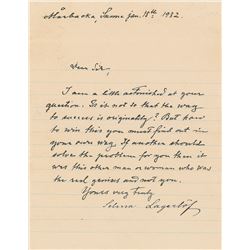 Mårbacka, Sunne jan. 18th. 1932.
Dear Sir,
I am a little astonished at your
question. Is it not so that the way
to success is originality? But how
to win this you must find out in
your own way. If another should
solve the problem for you then it
was this other man or woman who was
the real genius and not you.
Yours very truly
Selma Lagerlöf